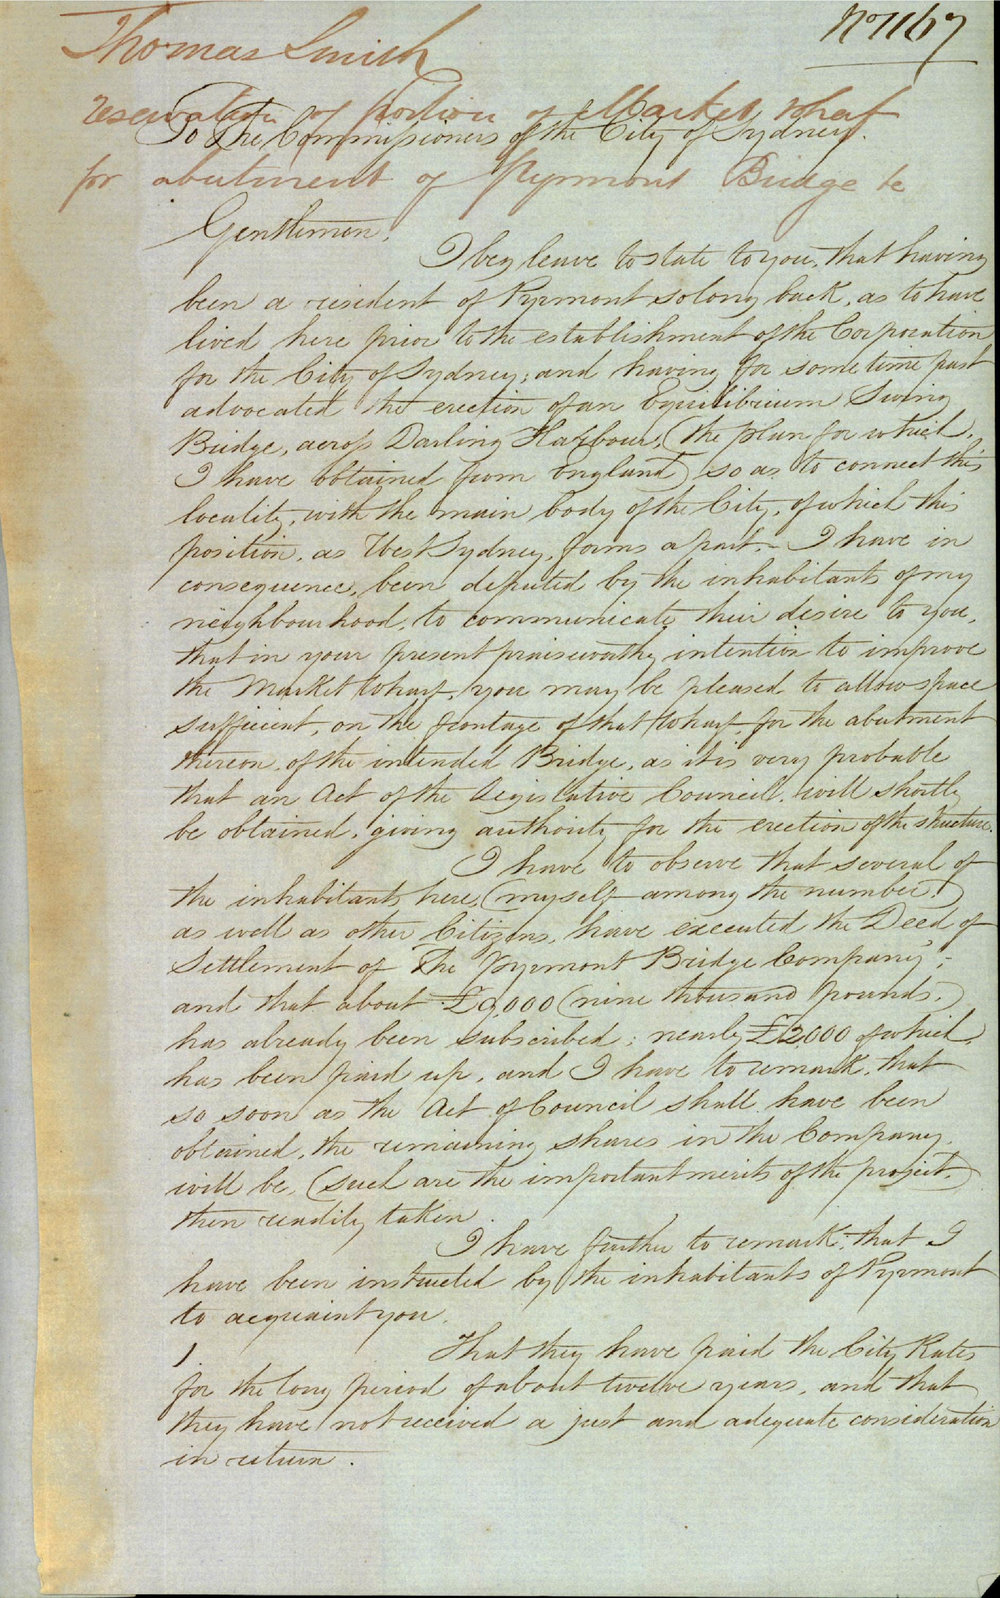 No 1167
Thomas Smith
reservation of portion of Market Wharf
To The Commissioners of the City of Sydney.
for abutment of Pyrmont Bridge &c
Gentlemen,
I beg leave to state to you, that having
been a resident of Pyrmont so long back, as to have
lived here prior to the establishment of the Corporation
for the City of Sydney; and having for some time past
advocated the erection of an Equilibrium Swing
Bridge, across Darling Harbour, (the plan for which,
I have obtained from England) so as to connect this
locality, with the main body of the City, of which this
position, as West Sydney, forms a part. - I have in
consequence, been deputed by the inhabitants of my
neighbourhood, to communicate their desire to you,
that in your present praiseworthy intention to improve
the Market Wharf, you may be pleased to allow space
sufficient, on the frontage of that Wharf, for the abutment
thereon, of the intended Bridge, as it is very probable
that an Act of the Legislative Council, will shortly
be obtained, giving authority for the erection of the structure.
I have to observe that several of
the inhabitants here, (myself among the number,)
as well as other Citizens, have executed the Deed of
Settlement of "The Pyrmont Bridge Company";
and that about £9,000 (nine thousand pounds,)
has already been subscribed; nearly £2,000 of which,
has been paid up, and I have to remark, that
so soon as the Act of Council shall have been
obtained, the remaining shares in the Company,
will be, (such are the important merits of the project,)
then readily taken.
I have further to remark, that I
have been instructed by the inhabitants of Pyrmont
to acquaint you.
1. That they have paid the City Rates
for the long period of about twelve years, and that
they have not received a just and adequate consideration
in return.